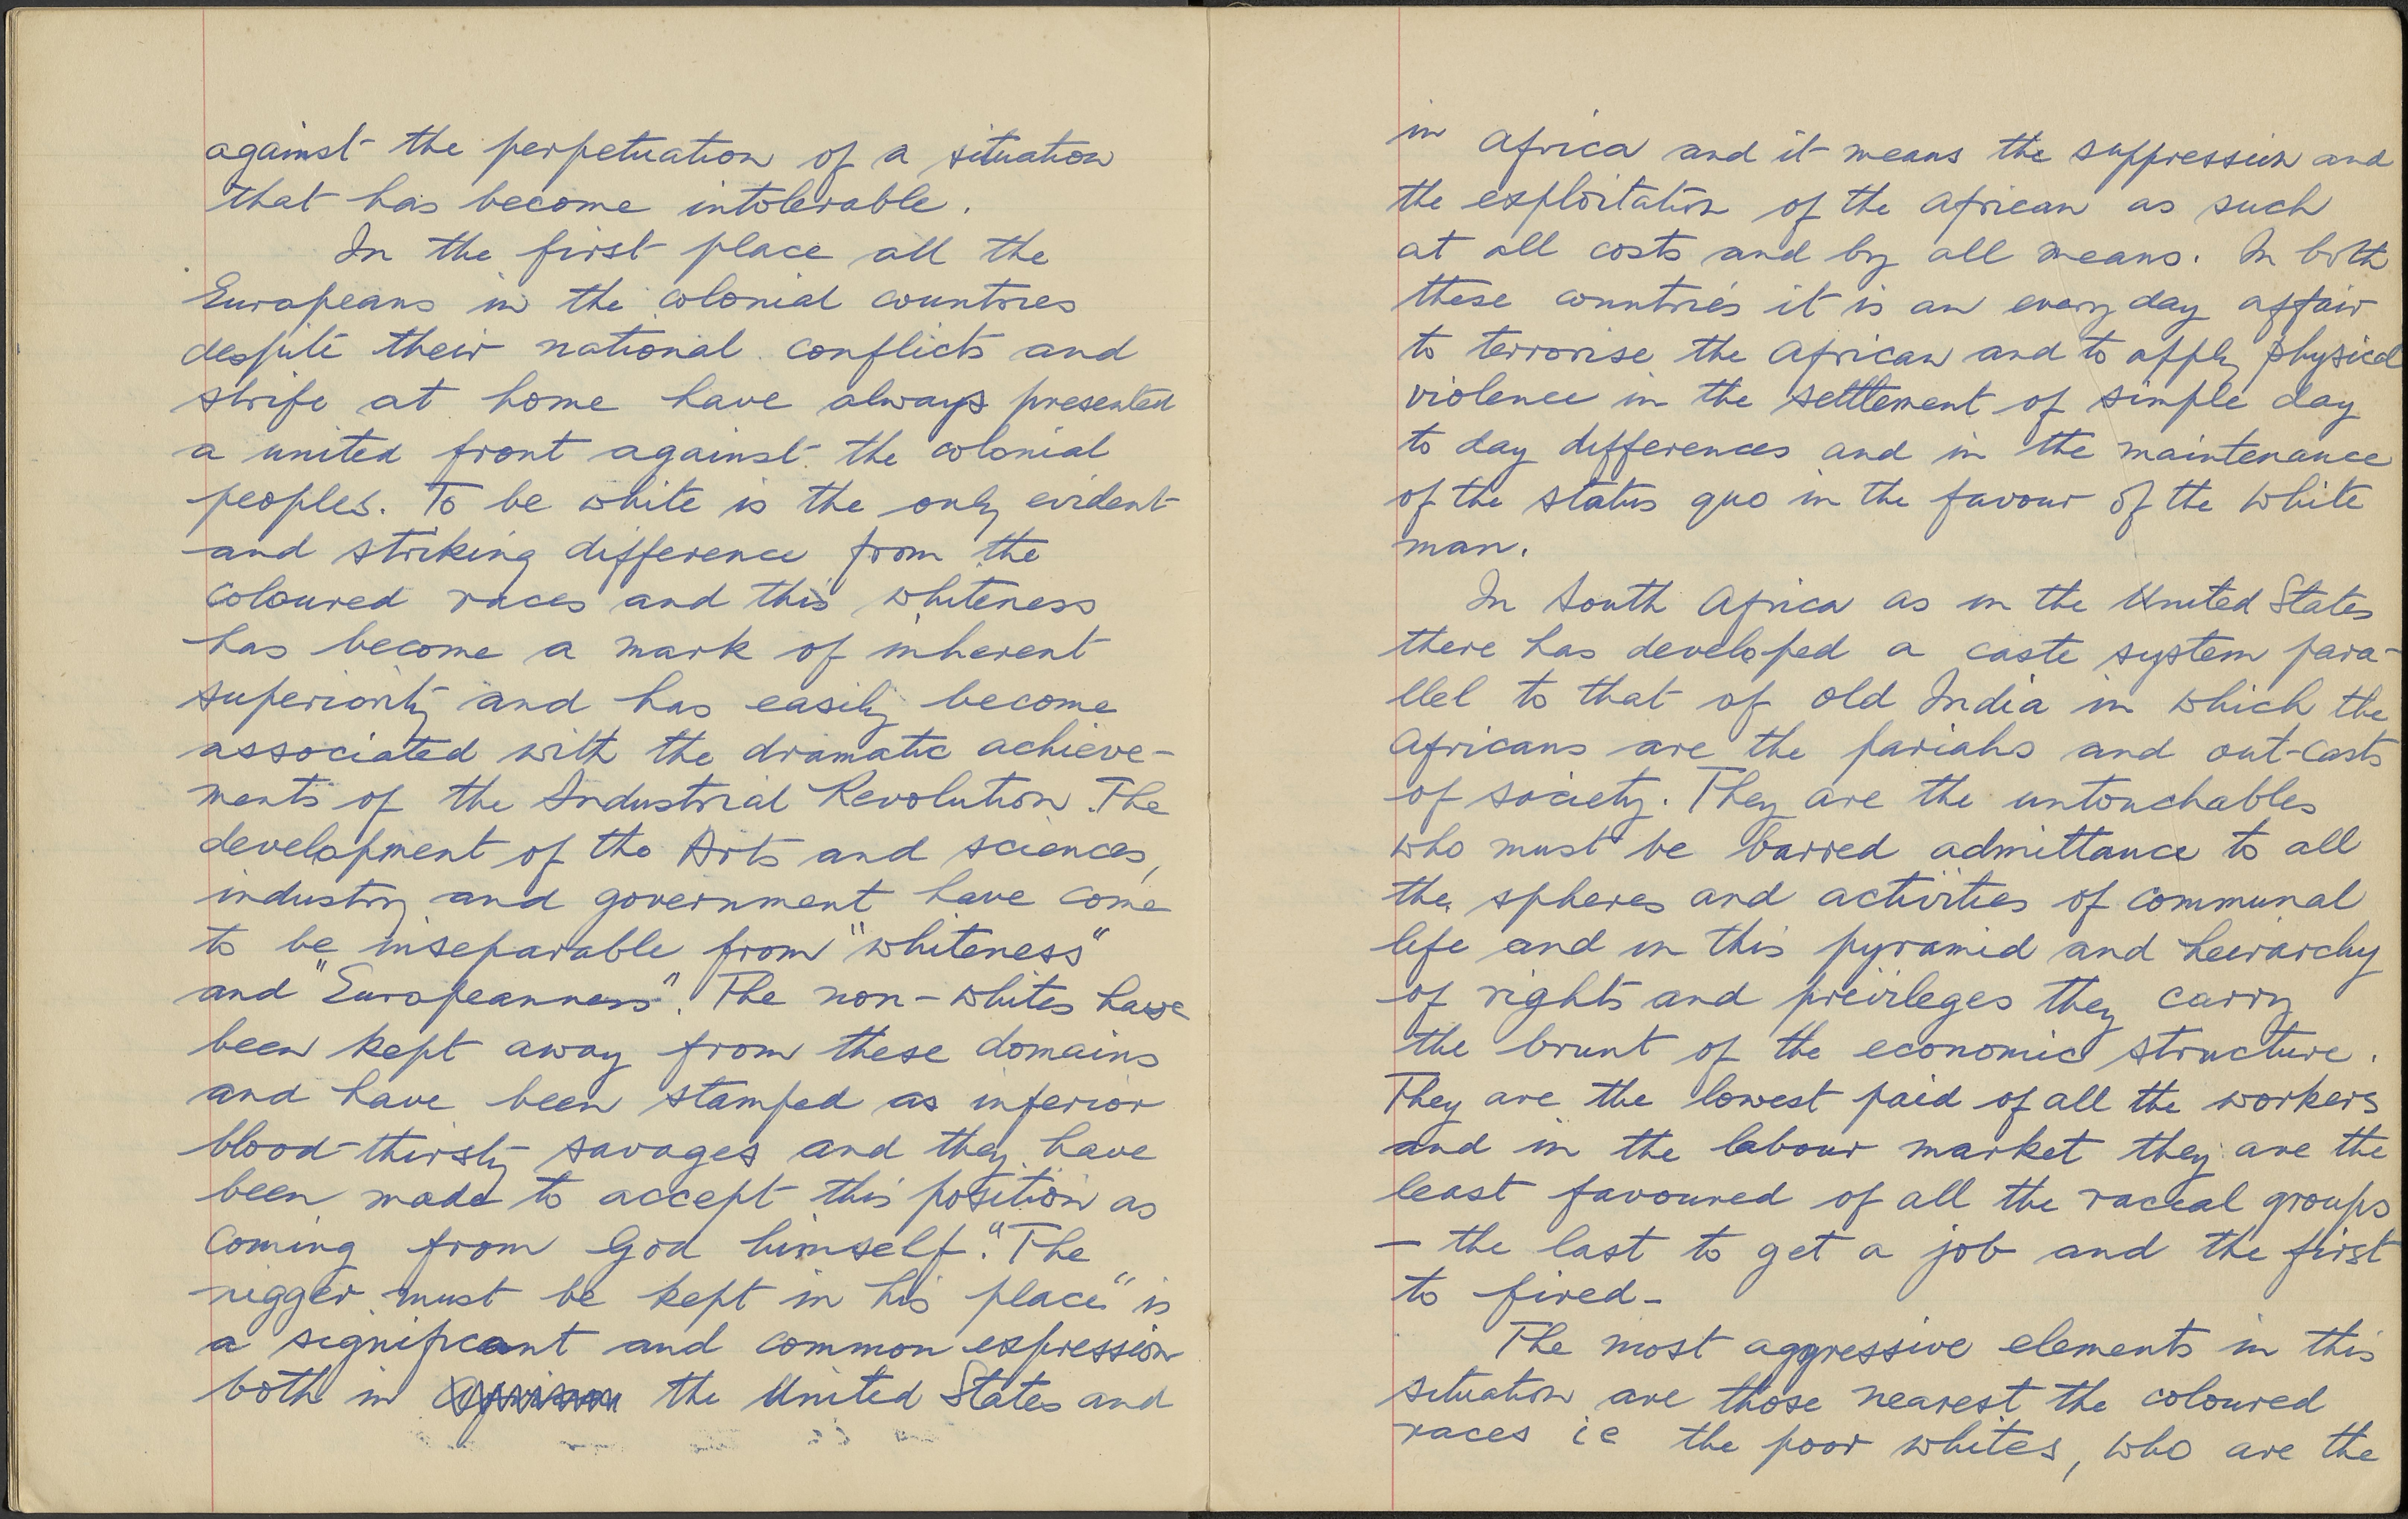 against the perpetuation of a situation
that has become intolerable.
In the first place all the
Europeans in the colonial countries
despite their national conflicts and
strife at home have always presented
a united front against the colonial
peoples. To be white is the only evident
and striking difference from the
coloured races and this whiteness
has become a mark of inherent
superiority and has easily become
associated with the dramatic achieve-
ments of the Industrial Revolution. The
development of the Arts and sciences,
industry and government have come
to be inseparable from "whiteness"
and "Europeanness". The non-whites have
been kept away from these domains
and have been stamped as inferior
blood-thirsty savages and they have
been made to accept this position as
coming from God himself. "The
nigger must be kept in his place" is
a significant and common expression
both in the United States and
in Africa and it means the suppression and
the exploitation of the African as such
at all costs and by all means. In both
these countries it is an every day affair
to terrorise the African and to apply physical
violence in the settlement of simple day
to day differences and in the maintenance
of the status quo in the favour of the white
man.
In South Africa as in the United States
there has developed a caste system para-
llel to that of old India in which the
Africans are the pariahs and out-casts
of society. They are the untouchables
who must be barred admittance to all
the spheres and activities of communal
life and in this pyramid and heirarchy
of rights and privileges they carry
the brunt of the economic structure.
They are the lowest paid of all the workers
and in the labour market they are the
least favoured of all the racial groups
– the last to get a job and the first
to fired –
The most aggressive elements in this
situation are those nearest the coloured
races ie the poor whites, who are the